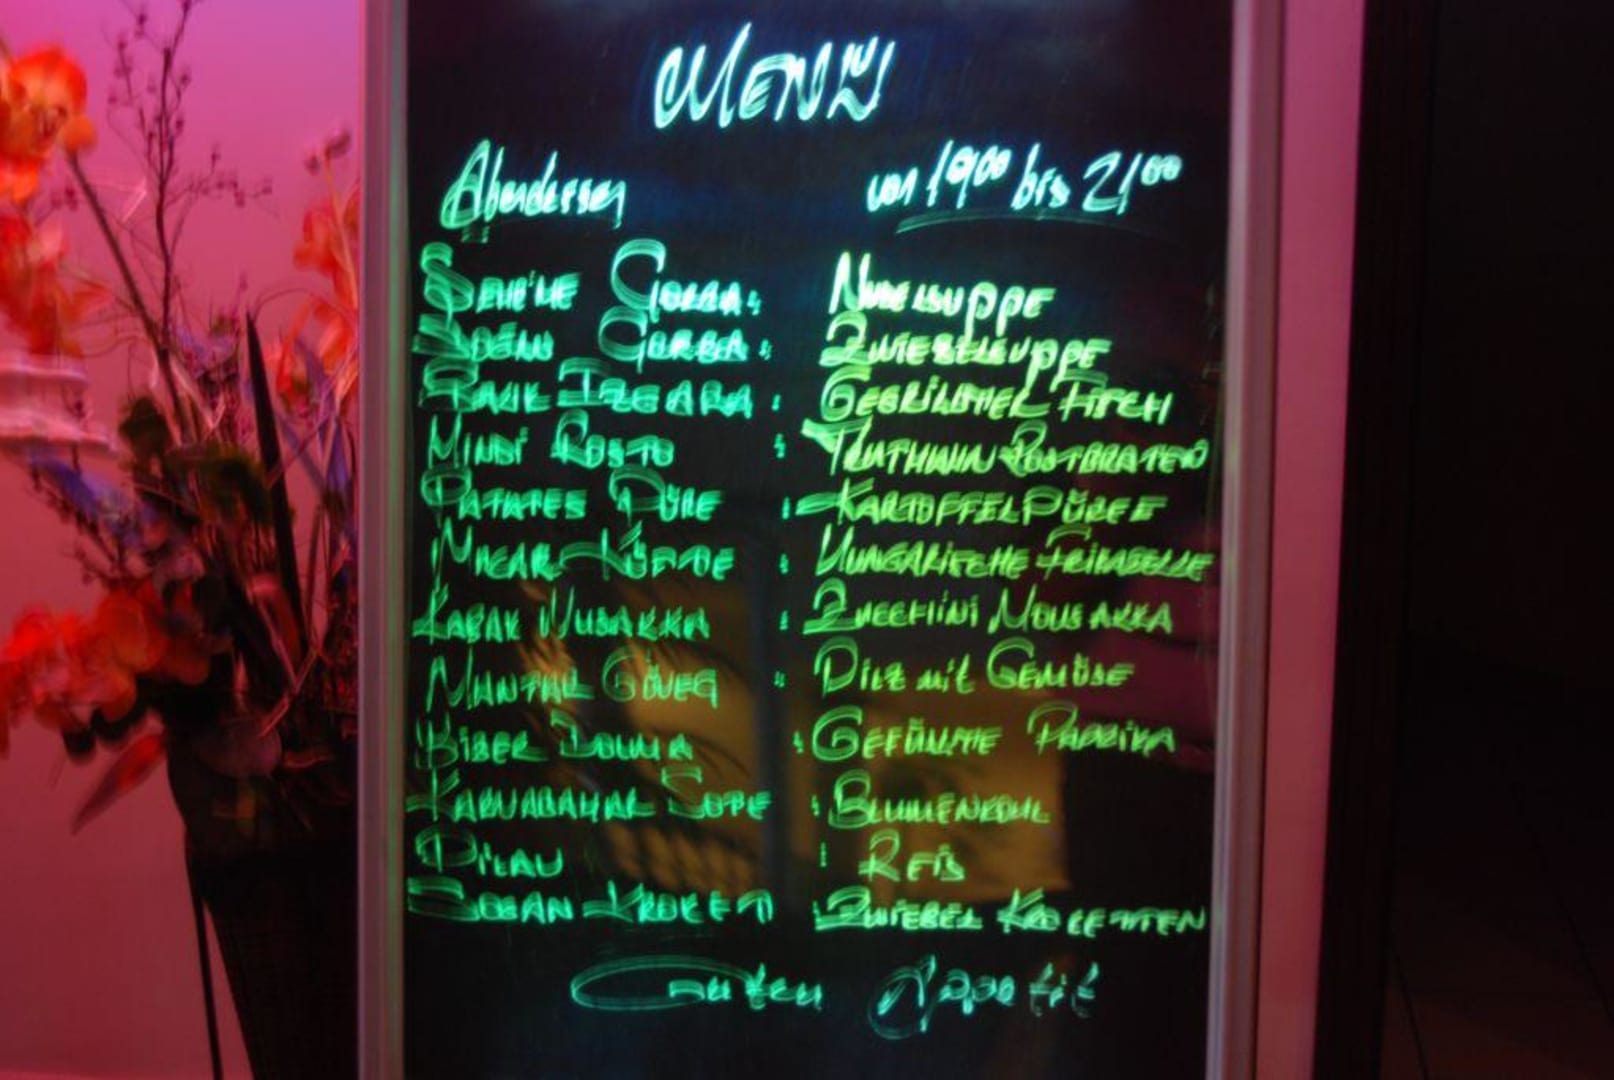 MENÜ
Abendessen von 19⁰⁰ bis 21⁰⁰
ŞEHRİYE ÇORBA: NUDELSUPPE
SOĞAN ÇORBA: ZWIEBELSUPPE
BALIK IZGARA: GEGRILLTER FISCH
HINDI ROSTO: TRUTHHAHN ROSTBRATEN
PATATES PÜRE: KARTOFFELPÜREE
MACAR KÖFTE: UNGARISCHE FRIKADELLE
KABAK MUSAKKA: ZUCCHINI MOUSAKKA
MANTAR GÜVEÇ: PILZ mit GEMÜSE
BİBER DOLMA: GEFÜLLTE PAPRIKA
KARNABAHAR SOTE: BLUMENKOHL
PİLAV: REIS
SOĞAN KROKET: ZWIEBEL KROKETTEN
Guten Appetit